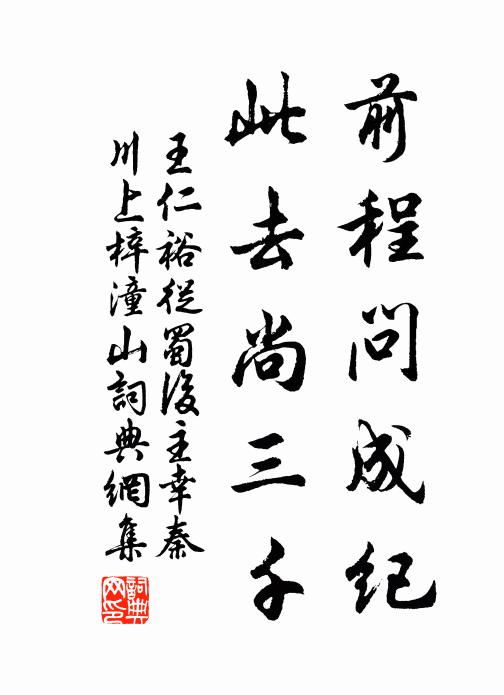 前程問成紀
此去尚三千
王仁裕從蜀後主幸秦
川上梓潼山詞典網集
詞典網印